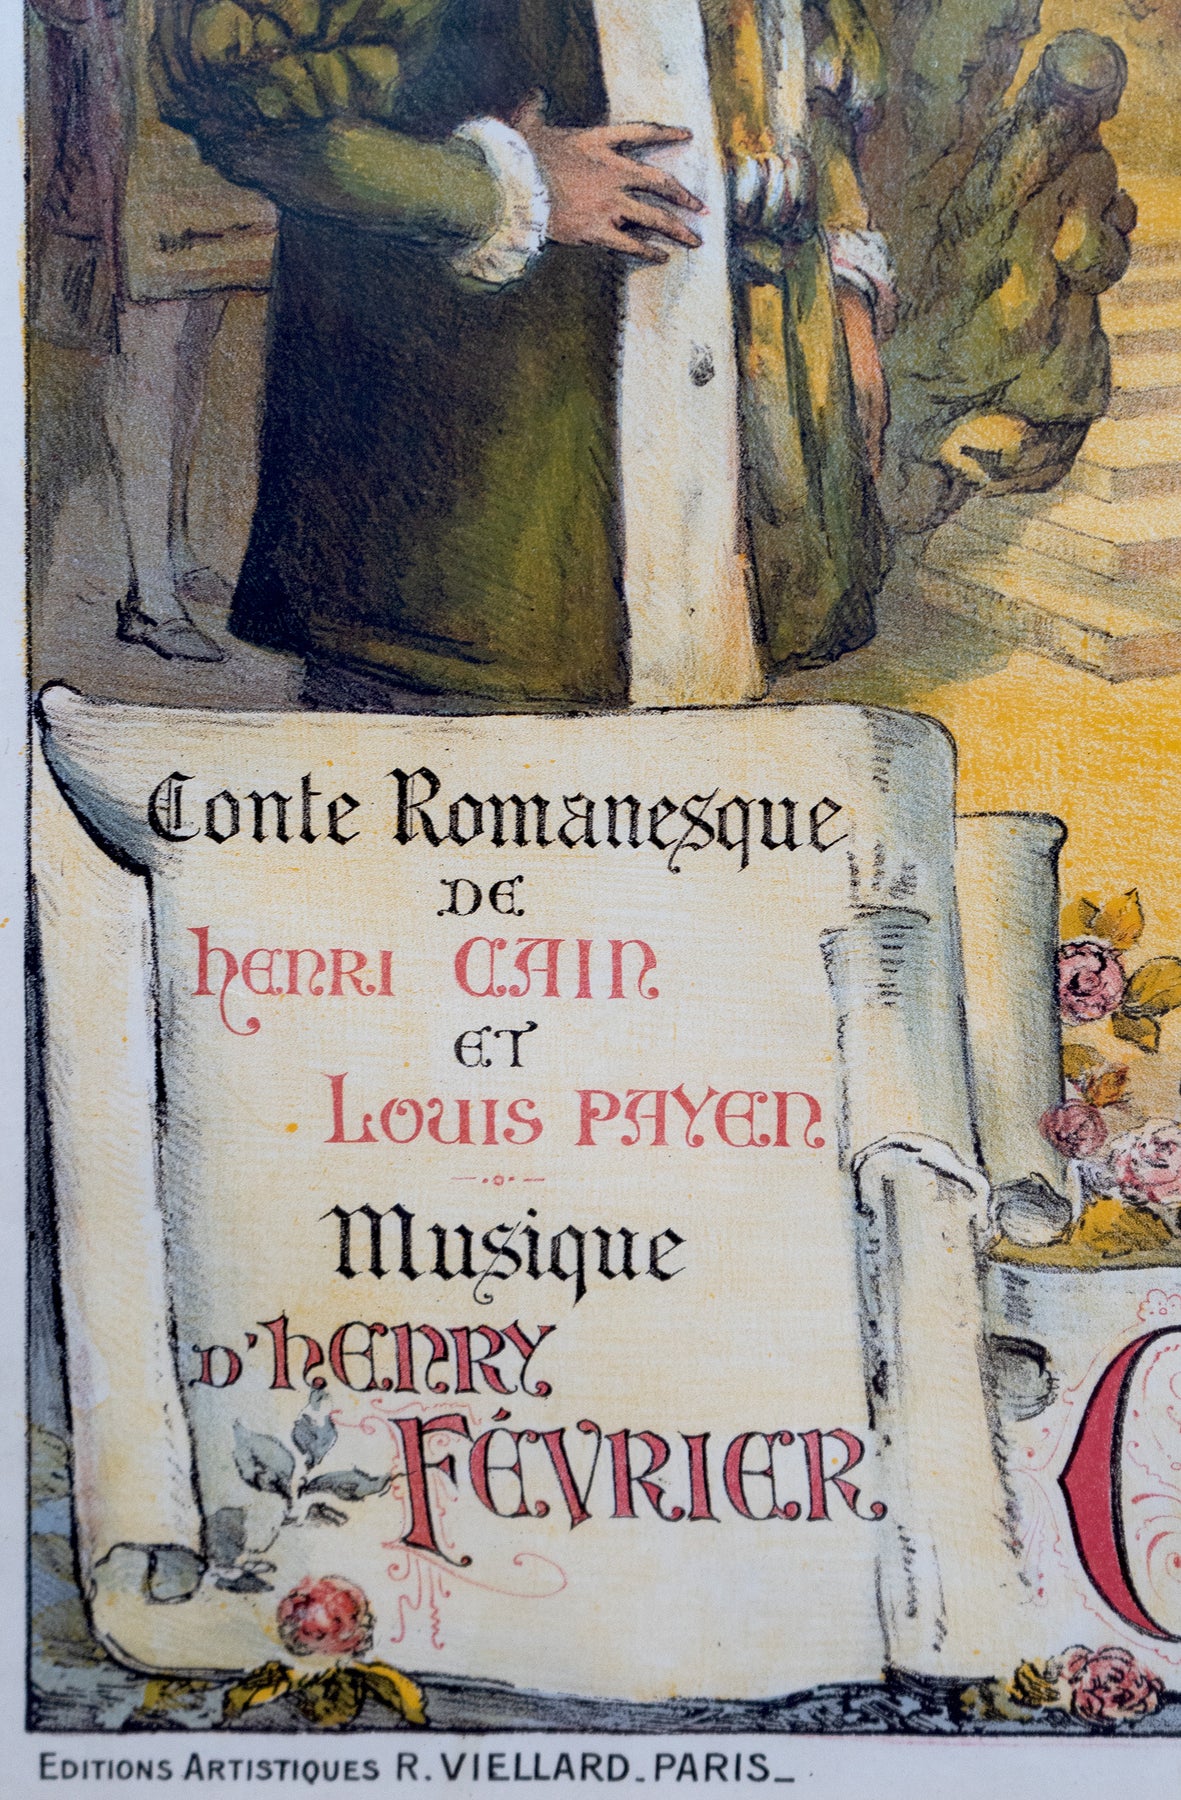 Conte Romanesque
DE
HENRI CAIN
ET
LOUIS PAYEN
Musique
D'HENRY
FÉVRIER
EDITIONS ARTISTIQUES R. VIELLARD_PARIS_